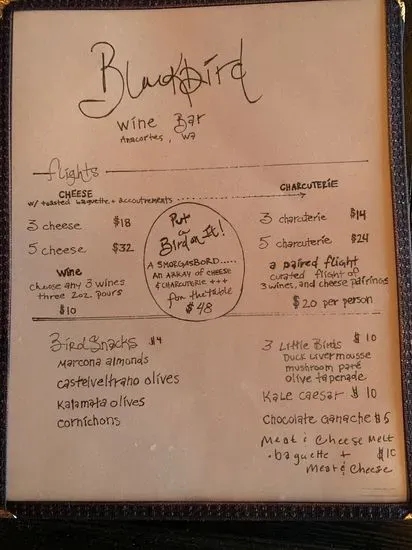 Blackbird
Wine Bar
Anacortes, WA
flights
CHEESE
w/ toasted baguette + accoutrements
3 cheese $18
5 cheese $32
Wine
choose any 3 wines
three 2oz. pours
$10
Put
a
Bird on It!
A SMORGASBORD.....
AN ARRAY OF CHEESE
& CHARCUTERIE +++
for the table
$48
CHARCUTERIE
3 charcuterie $14
5 charcuterie $24
a paired flight
curated flight of
3 wines, and cheese pairings
$20 per person
Bird Snacks $4
Marcona almonds
castelveltrano olives
Kalamata olives
cornichons
3 Little Birds $10
Duck Liver mousse
mushroom paté
olive tapenade
Kale Caesar $10
Chocolate Ganache $5
Meat & Cheese Melt
• baguette + $10
Meat & Cheese